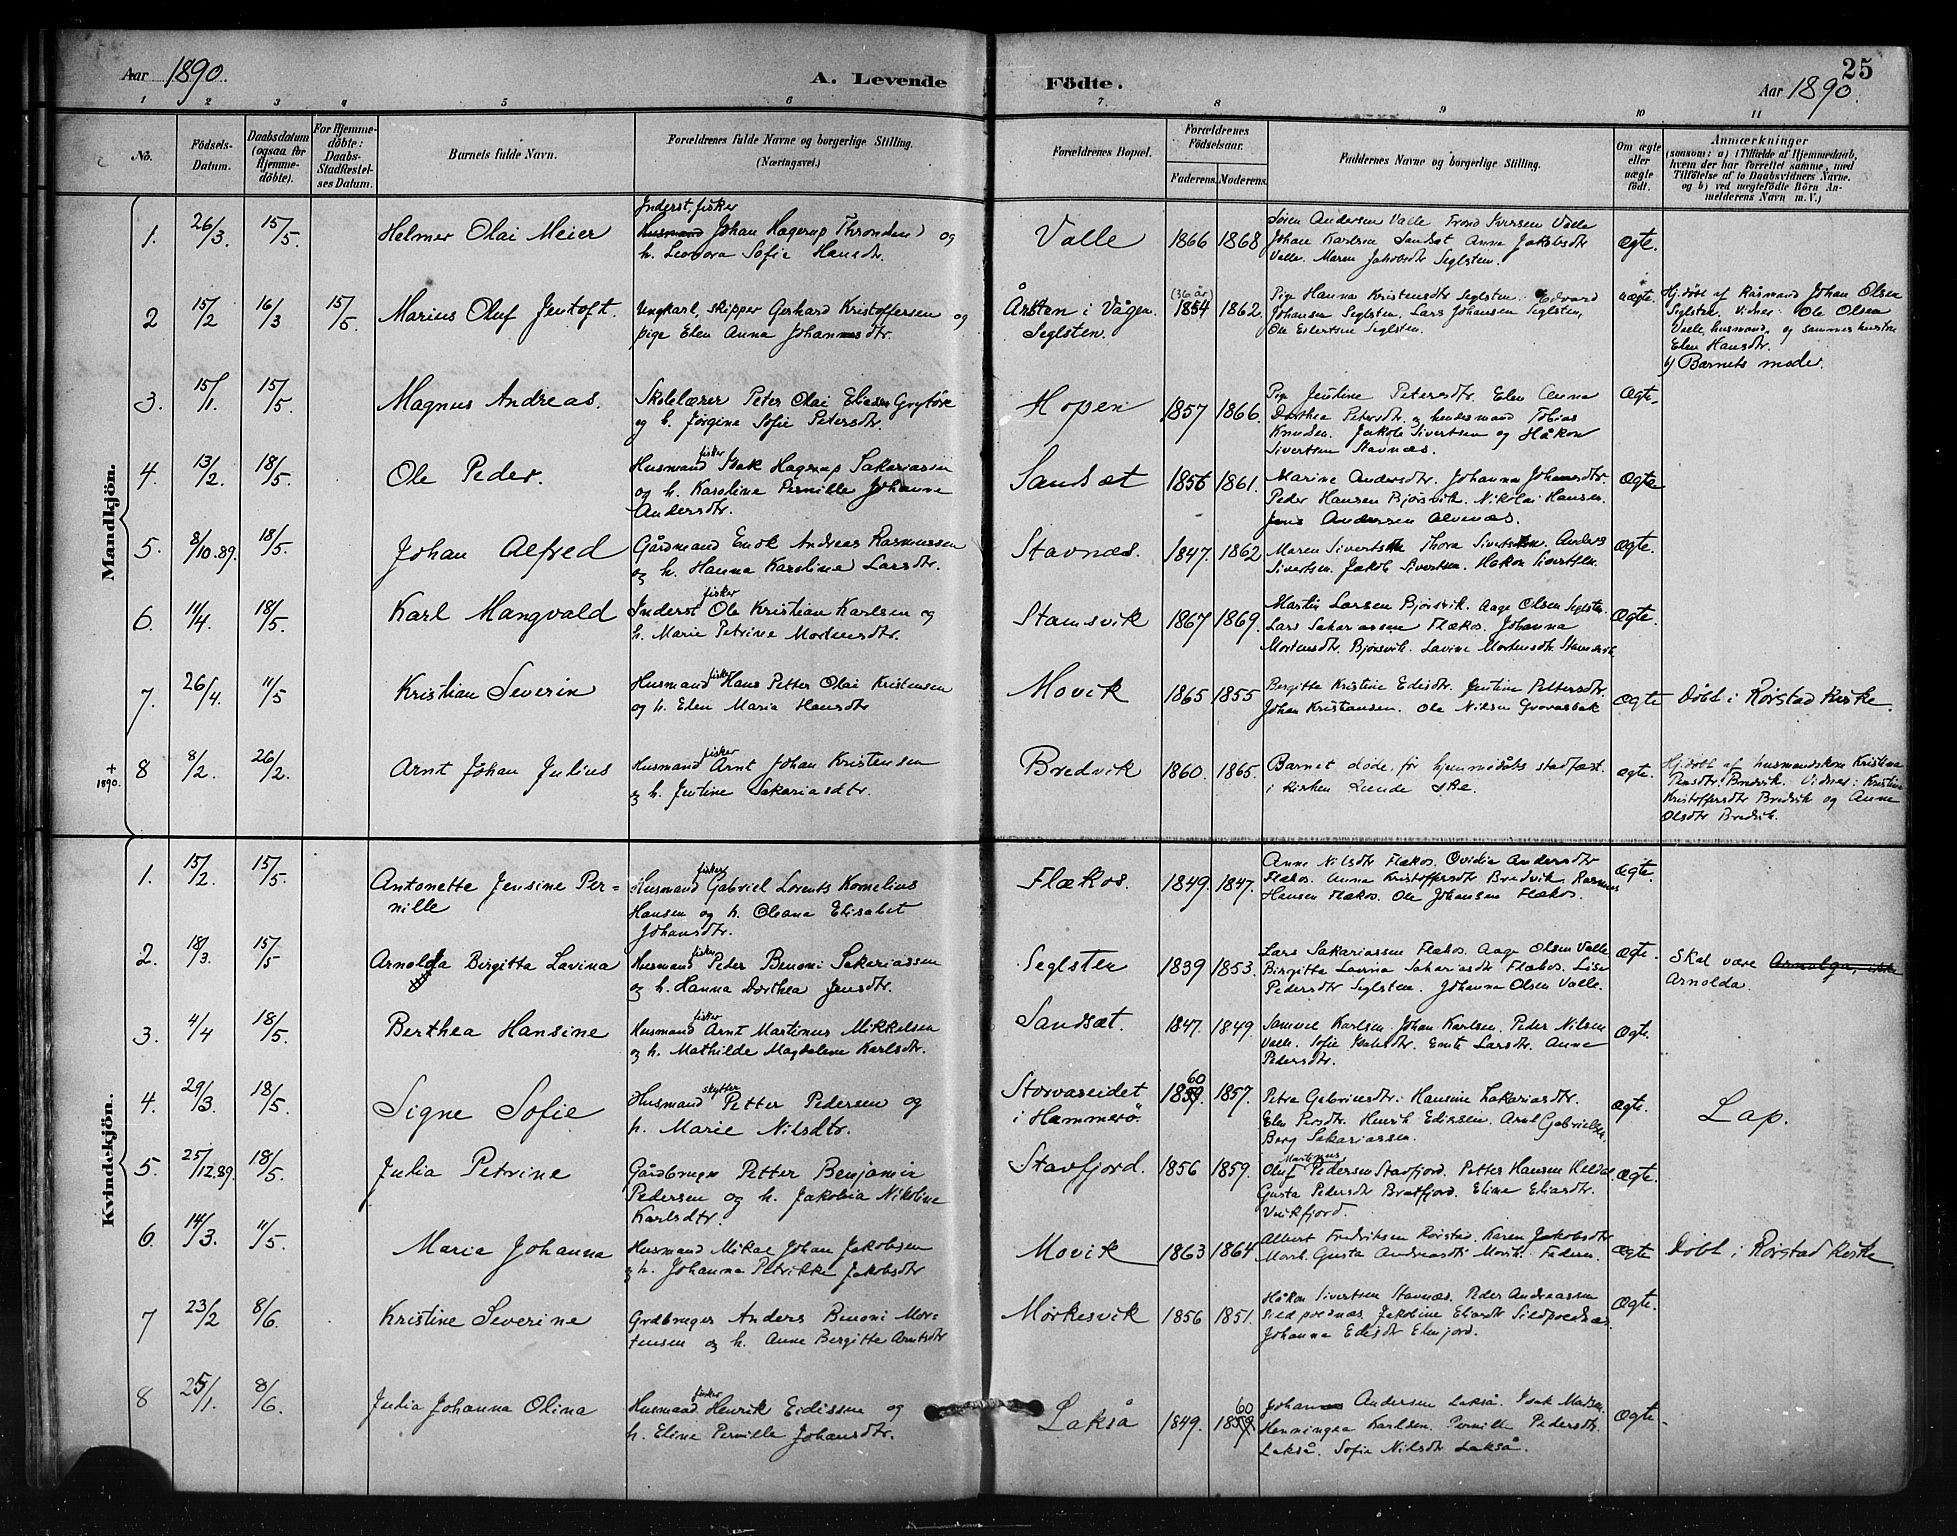 Aar 1890.
A. Levende Födte.
25
Aar 1890.
1 2 3 4 5 6 7 8 9 10 11
No.
Födsels-Datum.
Daabsdatum (ogsaa for Hjemme-döbte).
For Hjemme-döbte: Daabs-Stadfæstel-ses Datum.
Barnets fulde Navn.
Forældrenes fulde Navne og borgerlige Stilling.
(Næringsvei.)
Forældrenes Bopæl.
Forældrenes Födselsaar.
Faderens. Moderens.
Faddernes Navne og borgerlige Stilling.
Om ægte eller uægte födt.
Anmærkninger
(saasom: a) i Tilfælde af Hjemmedaab, hvem der har forrettet samme, med Tilföielse af to Daabsvidners Navne. og b) ved uægtefödte Börn An-melderens Navn m. V.)
Mandkjön.
1. 26/3. 15/5. Helmer Olai Meier
Inderst, fisker
Husmand Johan Hagerup Thronsen og
h. Leonora Sofie Hansdtr.
Valle 1866 1868
Søren Andersen Valle Trond Iversen Valle
Johan Karlsen Sandsæt Anna Jakobsdtr
Valle. Maren Jakobsdtr Seglsten.
Ægte.
2 15/2 16/3 15/5. Marius Oluf Jentoft.
Ungkarl, skipper Gerhard Kristoffersen og
pige Elen Anna Johannsdtr.
Årsten i Vågan.
Seglsten.
(36 år)
1854 1862.
Pige Hanna Kristensdtr Seglsten. Edvard
Johansen Seglsten, Lars Johansen Seglsten,
Ole Edertsen Seglsten.
uægte.
Hj.døbt af Råsmand Johan Olsen
Seglsten. Vidner: Ole Olsen
Valle, husmand, og sammes hustru
Elen Hansdtr.
b) Barnets moder.
3. 15/1. 15/5. Magnus Andreas.
Skolelærer Peter Olai Eliasen Grytøre
og h. Jørgine Sofie Petersdtr.
Hopen 1857 1866.
Pige Jentine Petersdtr. Elen Anna
Dorthea Petersdtr. og hendes mand Tobias
Knudsen. Jakob Sivertsen og Håkon
Sivertsen Stavnæs.
Ægte.
4. 13/2. 18/5. Ole Peder.
fisker
Husmand Isak Hagerup Sakariassen
og h. Karoline Pernille Johanne
Andersdtr.
Sandsæt 1856 1861.
Marine Andersdtr. Johanna Johansdtr.
Peder Hansen Bjørsvik. Nikolai Hansen.
Jens Andersen Alvenæs.
Ægte
5. 8/10.89. 18/5. Johan Alfred
Gårdmand Enok Andreas Rasmussen
og h. Hanna Karoline Larsdtr.
Stavnæs. 1847. 1862
Maren Sivertsen Thora Sivertsen. Anders
Sivertsen. Jakob Sivertsen. Håkon Sivertsen.
Ægte.
6. 11/4. 18/5. Karl Mangvald
fisker
Inderst Ole Kristian Karlsen og
h. Marie Petrine Mortensdtr.
Stamsvik 1867 1869.
Martin Larsen Bjørsvik. Aage Olsen Seglsten.
Lars Sakariassen Flækos. Johanna
Mortensdtr. Bjørsvik. Lavine Mortensdtr Stamsvik
Ægte.
7. 26/4. 11/5 Kristian Severin
fisker
Husmand Hans Petter Olai Kristensen
og h. Elen Maria Hansdtr
Movik 1865 1855
Bergitta Kristine Edisdtr. Jentine Pettersdtr.
Johan Kristiansen. Ole Nilsen Grovasbak
Ægte Døbt i Rørstad Kirke.
+ 1890.
8 8/2. 26/2. Arnt Johan Julius
fisker
Husmand Arnt Johan Kristensen
og h. Jentine Sakariasdtr.
Bredvik 1860. 1865.
Barnet døde før hjemmedåbs stadfæst.
i kirken kunde ske.
ægte.
Hj.døbt af husmandskone Kristina
Jensdtr. Bredvik. Vidner: Kristine
Kristoffersdtr Bredvik og Anne
Olsdtr Bredvik.
Kvindekjön.
1. 15/2. 15/5. Antonette Jensine Per-
nille
fisker
Husmand Gabriel Lorents Kornelius
Hansen og h. Oleana Elisabet
Johansdtr.
Flækos. 1849. 1847.
Anne Nilsdtr Flækos. Ovidia Andersdtr
Flækos. Anna Kristoffersdtr Bredvik. Rasmus
Hansen Flækos. Ole Johansen Flækos.
ægte.
2. 18/3. 15/5 Arnolda Birgitta Lavina
fisker
Husmand Peder Benoni Sakariassen
og h. Hanna Dorthea Jensdtr.
Seglsten 1839 1853.
Lars Sakariassen Flækos. Aage Olsen Valle
Birgitta Lavina Sakariasdtr Flækos. Lise
Pedersdtr Seglsten. Johanna Olsen Valle.
Ægte.
Skal være Arnolga, ikke
Arnolda.
3. 4/4 18/5. Berthea Hansine
fisker
Husmand Arnt Martinus Mikkelsen
og h. Mathilde Magdalene Karlsdtr.
Sandsæt. 1847. 1849.
Samuel Karlsen. Johan Karlsen. Peder Nilsen
Valle. Sofie Isaksdtr. Emte Larsdtr. Anne
Pedersdtr.
Ægte.
4. 29/3. 18/5. Signe Sofie
skytter
Husmand Petter Pedersen og
h. Marie Nilsdtr.
Storvaseidet
i Hammerö.
60
1859. 1857.
Petra Gabrielsdtr. Hansine Zakariasdtr.
Elen Persdtr. Henrik Edissen. Arnt Gabrielsen.
Berg Sakariassen.
Ægte Lap.
5. 25/12.89. 18/5 Julia Petrine
Gårdbruger Petter Benjamin
Pedersen og h. Jakobia Nikoline
Karlsdtr.
Stavfjord. 1856 1859.
Martinus
Oluf Pedersen Stavfjord. Petter Hansen Helldal
Gusta Pedersdtr Bratfjord. Eline Eliasdtr.
Veikfjord.
Ægte.
6. 14/3. 11/5. Maria Johanna
Husmand Mikal Johan Jakobsen
og h. Johanna Petrikke Jakobsdtr
Movik 1863 1864
Albert Fredriksen Rørstad. Karen Jakobsdtr
Movik Gusta Andreasdtr Movik. Faderen.
Ægte Døbt i Rørstad Kirke
7 23/2 8/6. Kristine Severine
Grdbruger Anders Benoni Mor-
tensen og h. Anne Bergitte Arntsdtr
Mørkesvik 1856 1851.
Håkon Sivertsen Stavnæs. Peder Andreassen
Sildpoldnæs. Jakobine Eliasdtr Sildpoldnæs.
Johanna Edisdtr Elvfjord.
Ægte.
8 25/1. 8/6. Julia Johanna Olina
fisker
Husmand Henrik Eidissen og
h. Eline Pernille Johansdtr.
Lakså 1849.
60
1859.
Johannes Andersen Lakså. Isak Madsen.
Henningsa Karlsen. Pernille Pedersdtr.
Lakså. Sofie Nilsdtr Lakså.
Ægte.